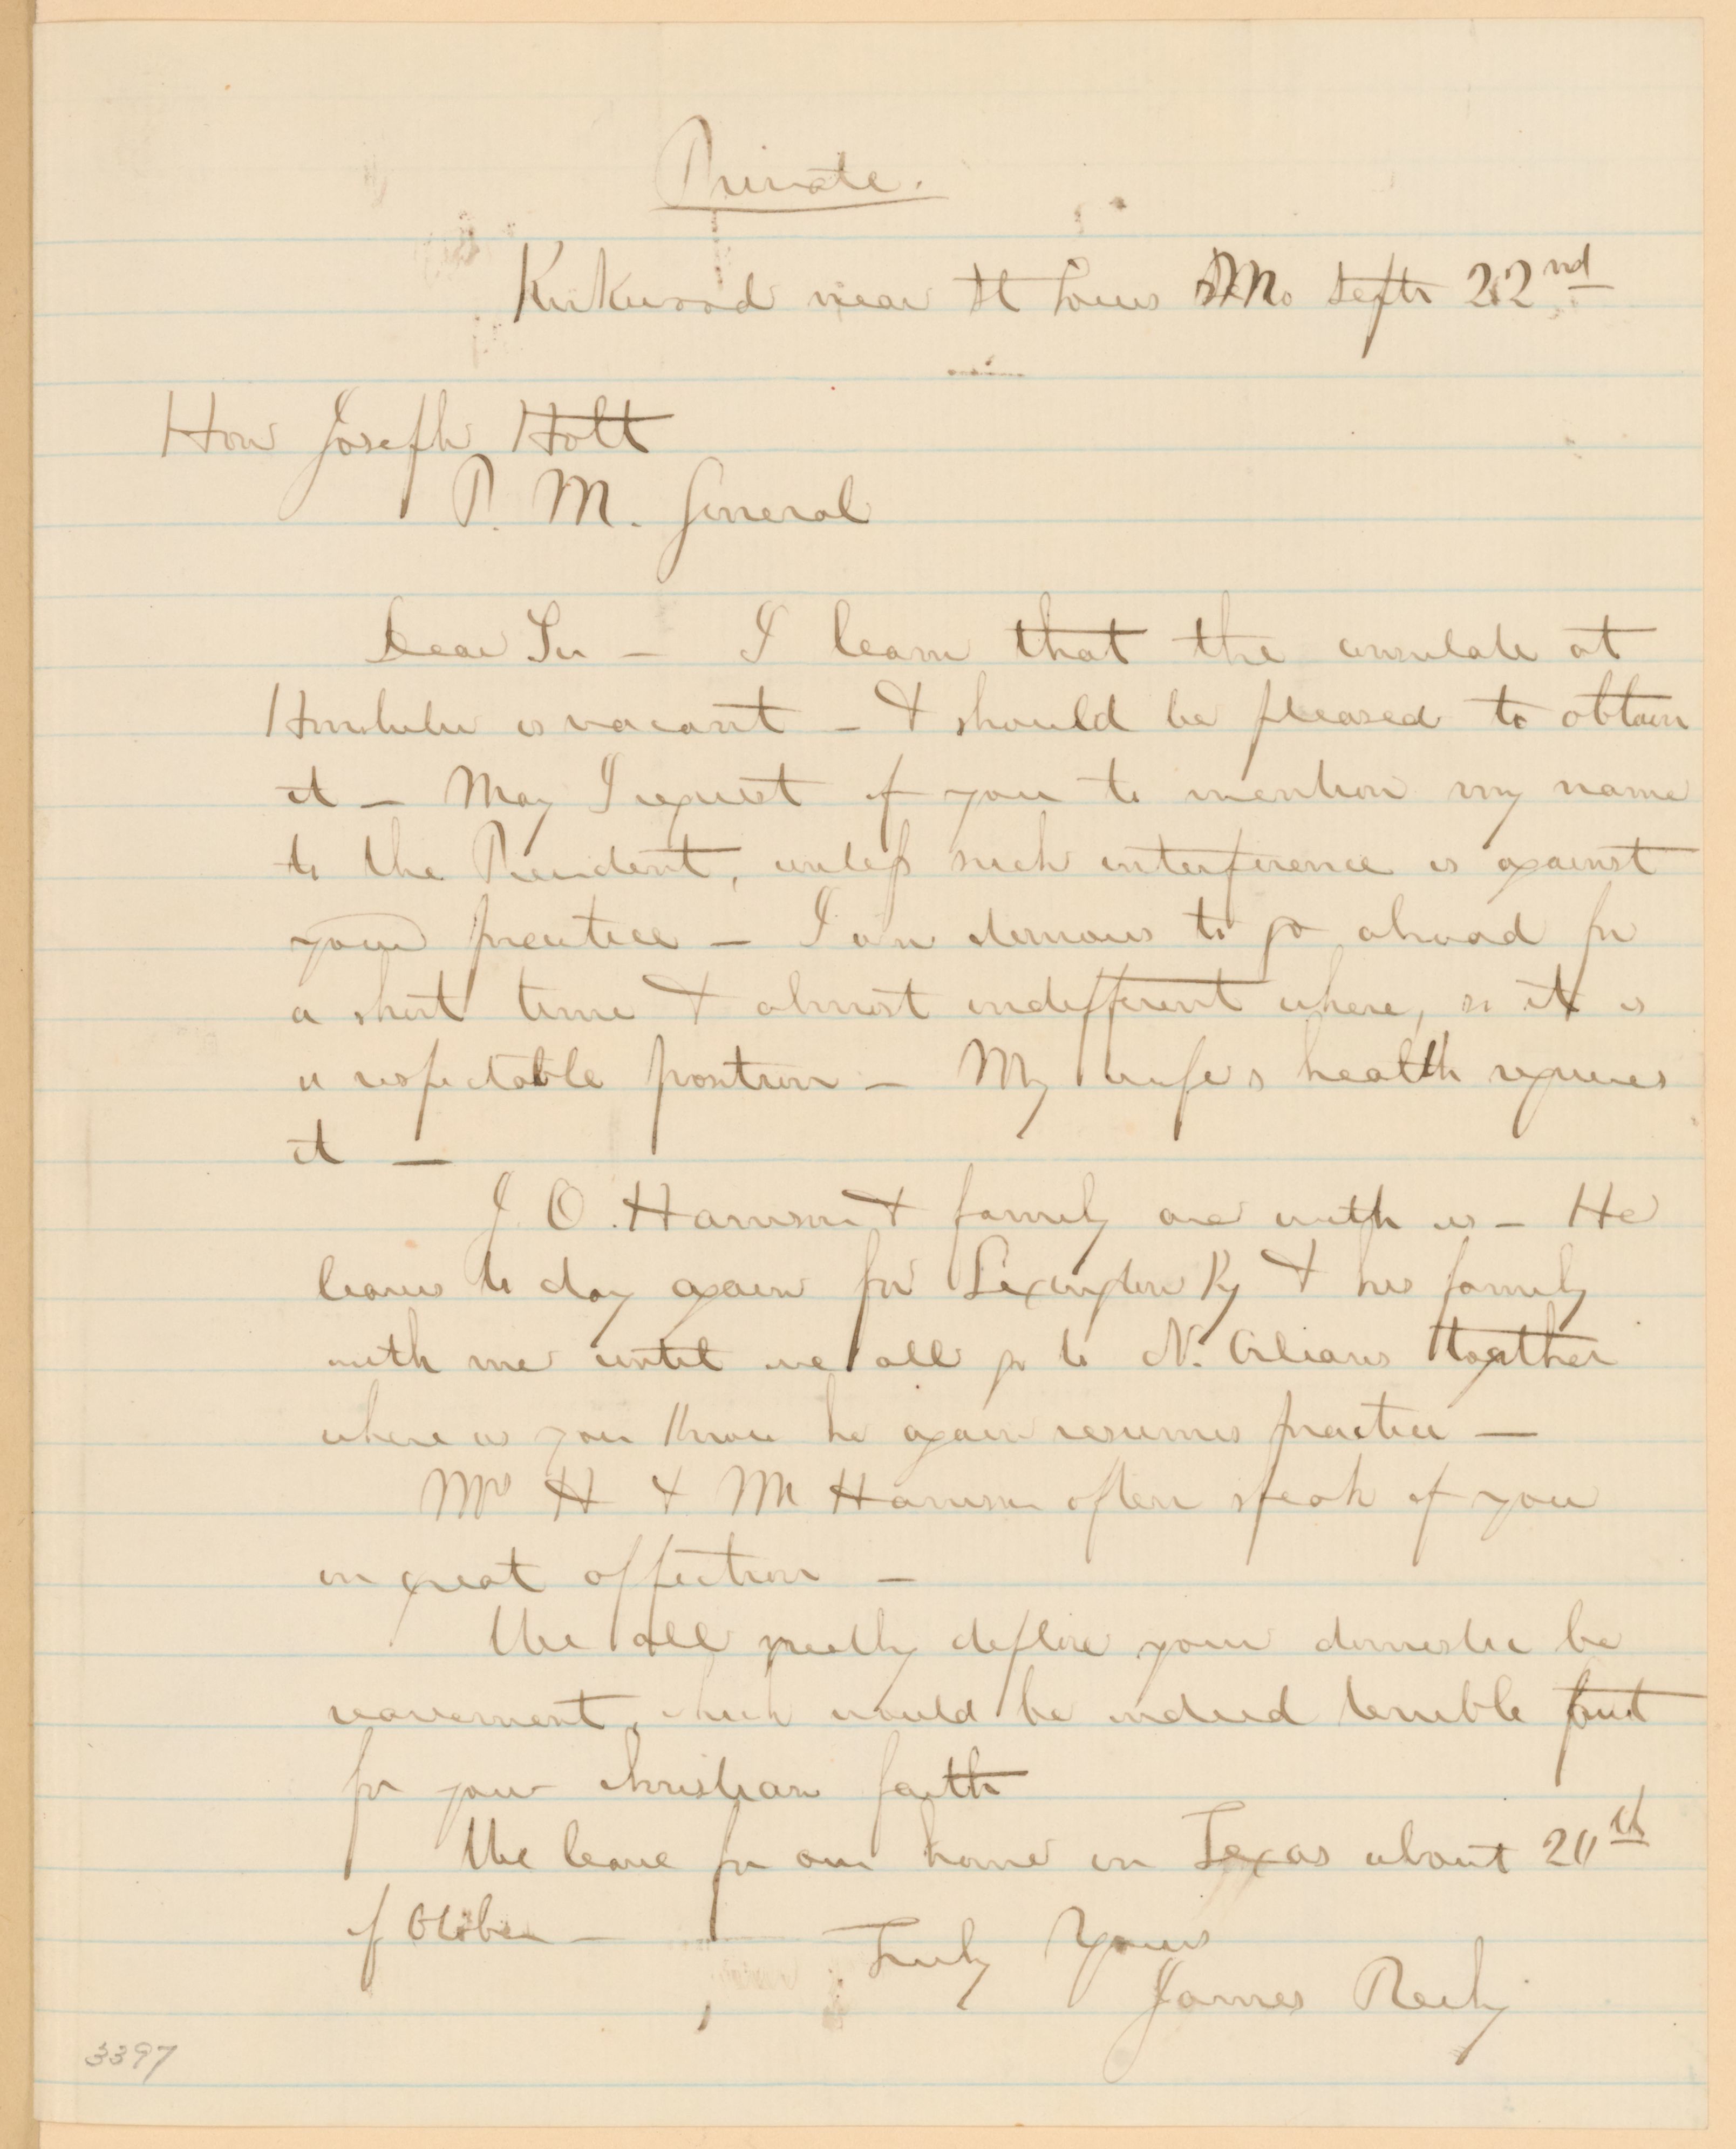 Private.
Kirkwood near St Louis Mo Septr 22nd
Hon Joseph Holt
P. M. General
Dear Sir – I learn that the consulate at
Honolulu is vacant – & should be pleased to obtain
it – May I request of you to mention my name
to the President, unless such interference is against
your practice – I am desirous to go abroad for
a short time & almost indifferent where, so it is
a respectable position – My wife's health requires
it –
J. O. Harrison & family are with us – He
leaves to day again for Lexington Ky & his family
with me until we all go to N. Orleans together
where as you know he again resumes practice –
Mrs H & Mr Harrison often speak of you
in great affection –
We all greatly deplore your domestic be
reavement, which would be indeed terrible but
for your christian faith
We leave for our home in Texas about 20th
of October –
Truly Yours
James Reily
3397